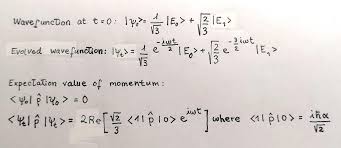 Wavefunction at t=0: |ψ₀⟩ = 1/√3 |E₀⟩ + √(2/3) |E₁⟩
Evolved wavefunction: |ψₜ⟩ = 1/√3 e^(-iωt/2) |E₀⟩ + √(2/3) e^(-3/2 iωt) |E₁⟩
Expectation value of momentum:
⟨ψ₀| p̂ |ψ₀⟩ = 0
⟨ψₜ| p̂ |ψₜ⟩ = 2Re[√2/3 ⟨1| p̂ |0⟩ e^(iωt)] where ⟨1| p̂ |0⟩ = iħα/√2